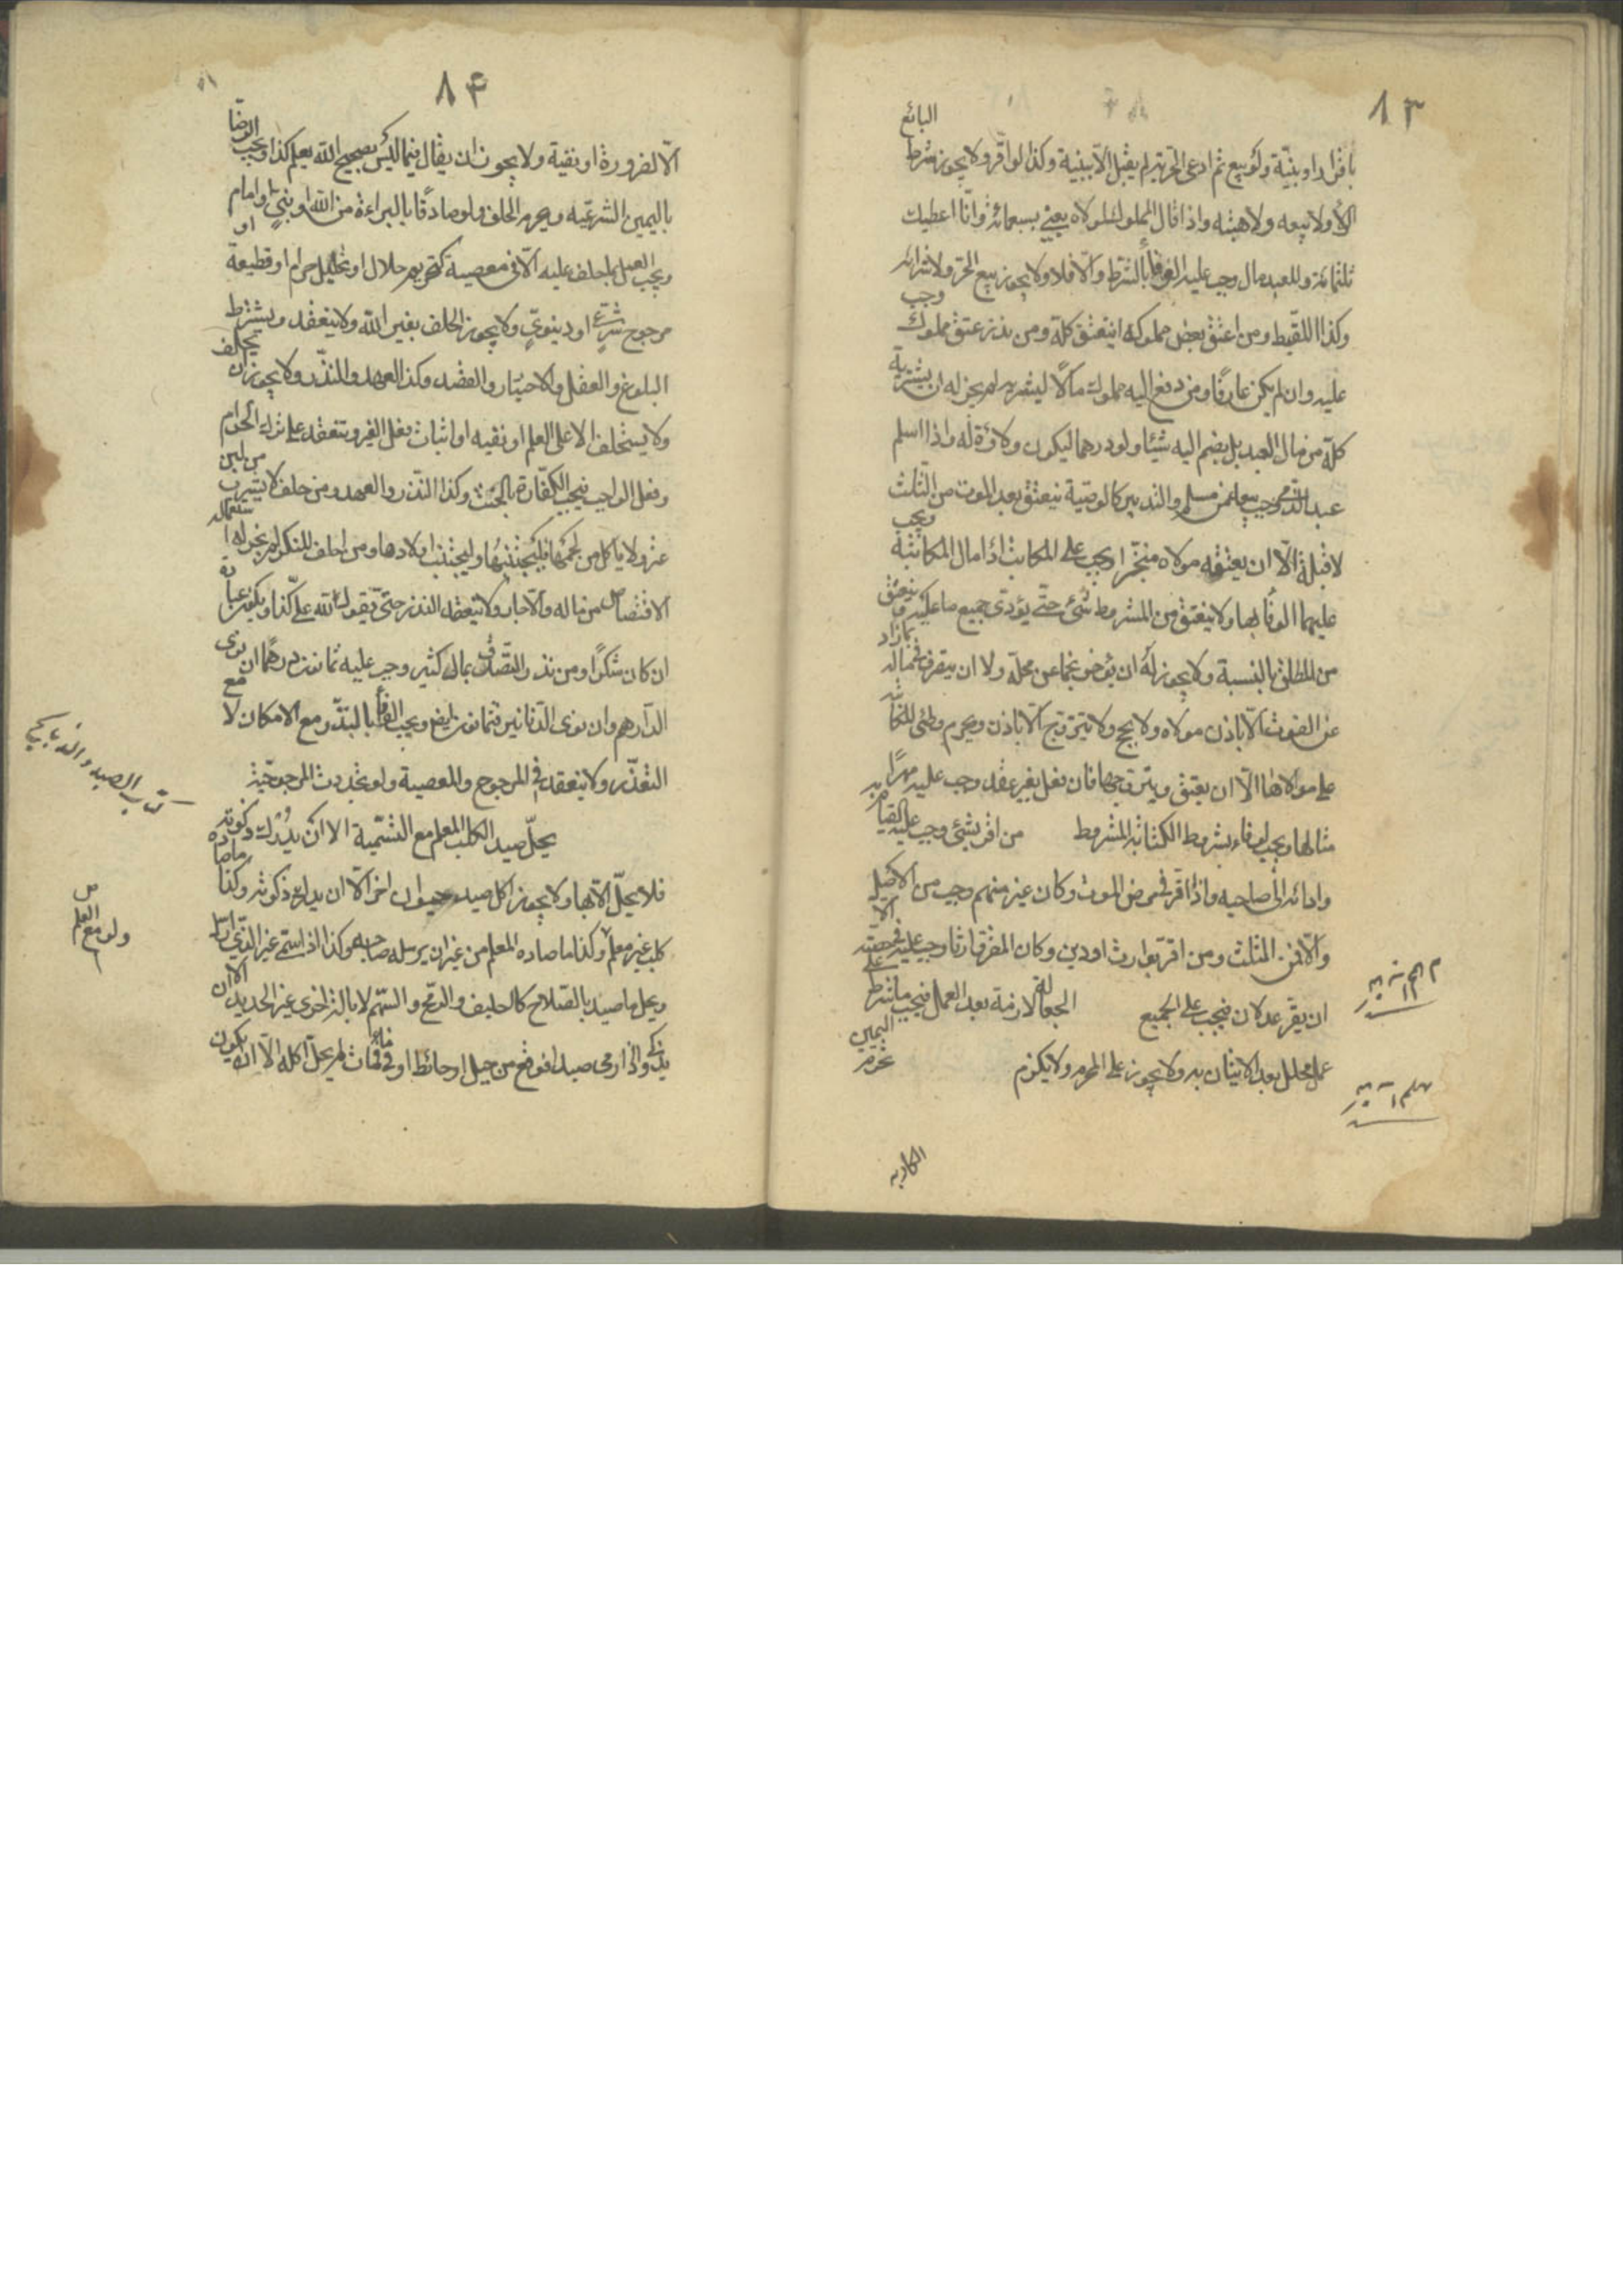 ٨٣
البائع
باقرار او بينة ولو بيع ثم ادعى الحرية لم يقبل الا ببينة وكذا لو اقر ولا يجوز شرط
الولاء ولا بيعه ولا هبته واذا قال المملوك لمولاه بعني بسبعمائة وانا اعطيك
ثلثمائة وللعبد مال وجب عليه الوفاء بالشرط والا فلا ولا يجوز بيع الحر ولا شراؤه
وكذا اللقيط ومن اعتق بعض مملوكه انعتق كله ومن نذر عتق مملوك وجب
عليه وان لم يكن عارفا ومن دفع اليه مملوك مالا ليشتريه لم يجز له ان يشتريه
كله من مال العبد بل يضم اليه شيئا ولو درهما ليكون ولاؤه له واذا اسلم
عبد الذمي وجب بيعه من مسلم والتدبير كالوصية ينعتق بعد الموت من الثلث
لا قبله الا ان يعتقه مولاه منجزا ويجب على المكاتب اداء مال المكاتبة ويجب
عليهما الوفاء بها ولا ينعتق من المشروط شئ حتى يؤدي جميع ما عليه وينعتق
من المطلق بالنسبة ولا يجوز له ان يؤخر نجما عن محله ولا ان يتصرف في ماله بما زاد
عن القوت الا باذن مولاه ولا يحج ولا يتزوج الا باذن ويحرم وطئ المكاتبة
على مولاها الا ان يعتق ويتزوجها فان فعل بغير عقد وجب عليه مهر
مثالها ويجب الوفاء بشروط الكتابة المشروط من اقر بشئ وجب عليه القيام به
وادائه الى صاحبه واذا اقر في مرض الموت وكان غير متهم وجب من الاصل
والا فمن الثلث ومن اقر بوارث او دين وكان المقر وارثا وجب عليه في حصته الا
ان يقر عدلان فيجب على الجميع الجعالة لازمة بعد العمل فيجب ما شرط على
عمل محلل بعد الاتيان به ولا يجوز على المحرم ولا يلزم
اليمين
تحرم
الكاذبة
٨۴
الا لضرورة او تقية ولا يجوز ان يقال فيما ليس بصحيح الله يعلم كذا ويجب الرضا
باليمين الشرعية ويحرم الحلف ولو صادقا بالبراءة من الله او نبي او امام
ويجب العمل بما حلف عليه الا في معصية كتحريم حلال او تحليل حرام او قطيعة او
مرجوح شرعي او دينوي ولا يجوز الحلف بغير الله ولا ينعقد ويشترط
البلوغ والعقل والاختيار والقصد وكذا العهد والنذر ولا يجوز ان يحلف
ولا يستحلف الا على العلم او نفيه او اثبات فعل الغير وتنعقد على ترك الحرام
وفعل الواجب فيجب الكفارة بالحنث وكذا النذر والعهد ومن حلف لا يشرب من لبن
عنز ولا ياكل من لحمها فليجتنبها وليجتنب اولادها ومن احلف المنكر لم يجز له
الاقتصاص من ماله والا جاز ولا ينعقد النذر حتى يقول لله علي كذا
ان كان شكرا ومن نذر التصدق بمال كثير وجب عليه ثمانون درهما ان نوى
الدراهم وان نوى الدنانير فثمانون ايضا ويجب الوفاء بالنذر مع الامكان لا مع
التعذر ولا ينعقد في المرجوح والمعصية ولو تجددت المرجوحية
كتاب الصيد والذبايح
يحل صيد الكلب المعلم مع التسمية الا ان يدرك ذكوته
فلا يحل الا بها ولا يجوز اكل صيد حيوان اخر الا ان يدرك ذكوته وكذا ما صاده
كلب غير معلم وكذا ما صاده المعلم من غير ان يرسله صاحبه وكذا اذا سمى غير الذي ارسل
ولو مع العلم
ويحل ما صيد بالسلاح كالسيف والرمح والسهم لا بالة اخرى غير الحديد الا ان
يذكى واذا رمى صيدا فوقع من جبل او حائط او في ماء فمات لم يحل اكله الا ان يكون